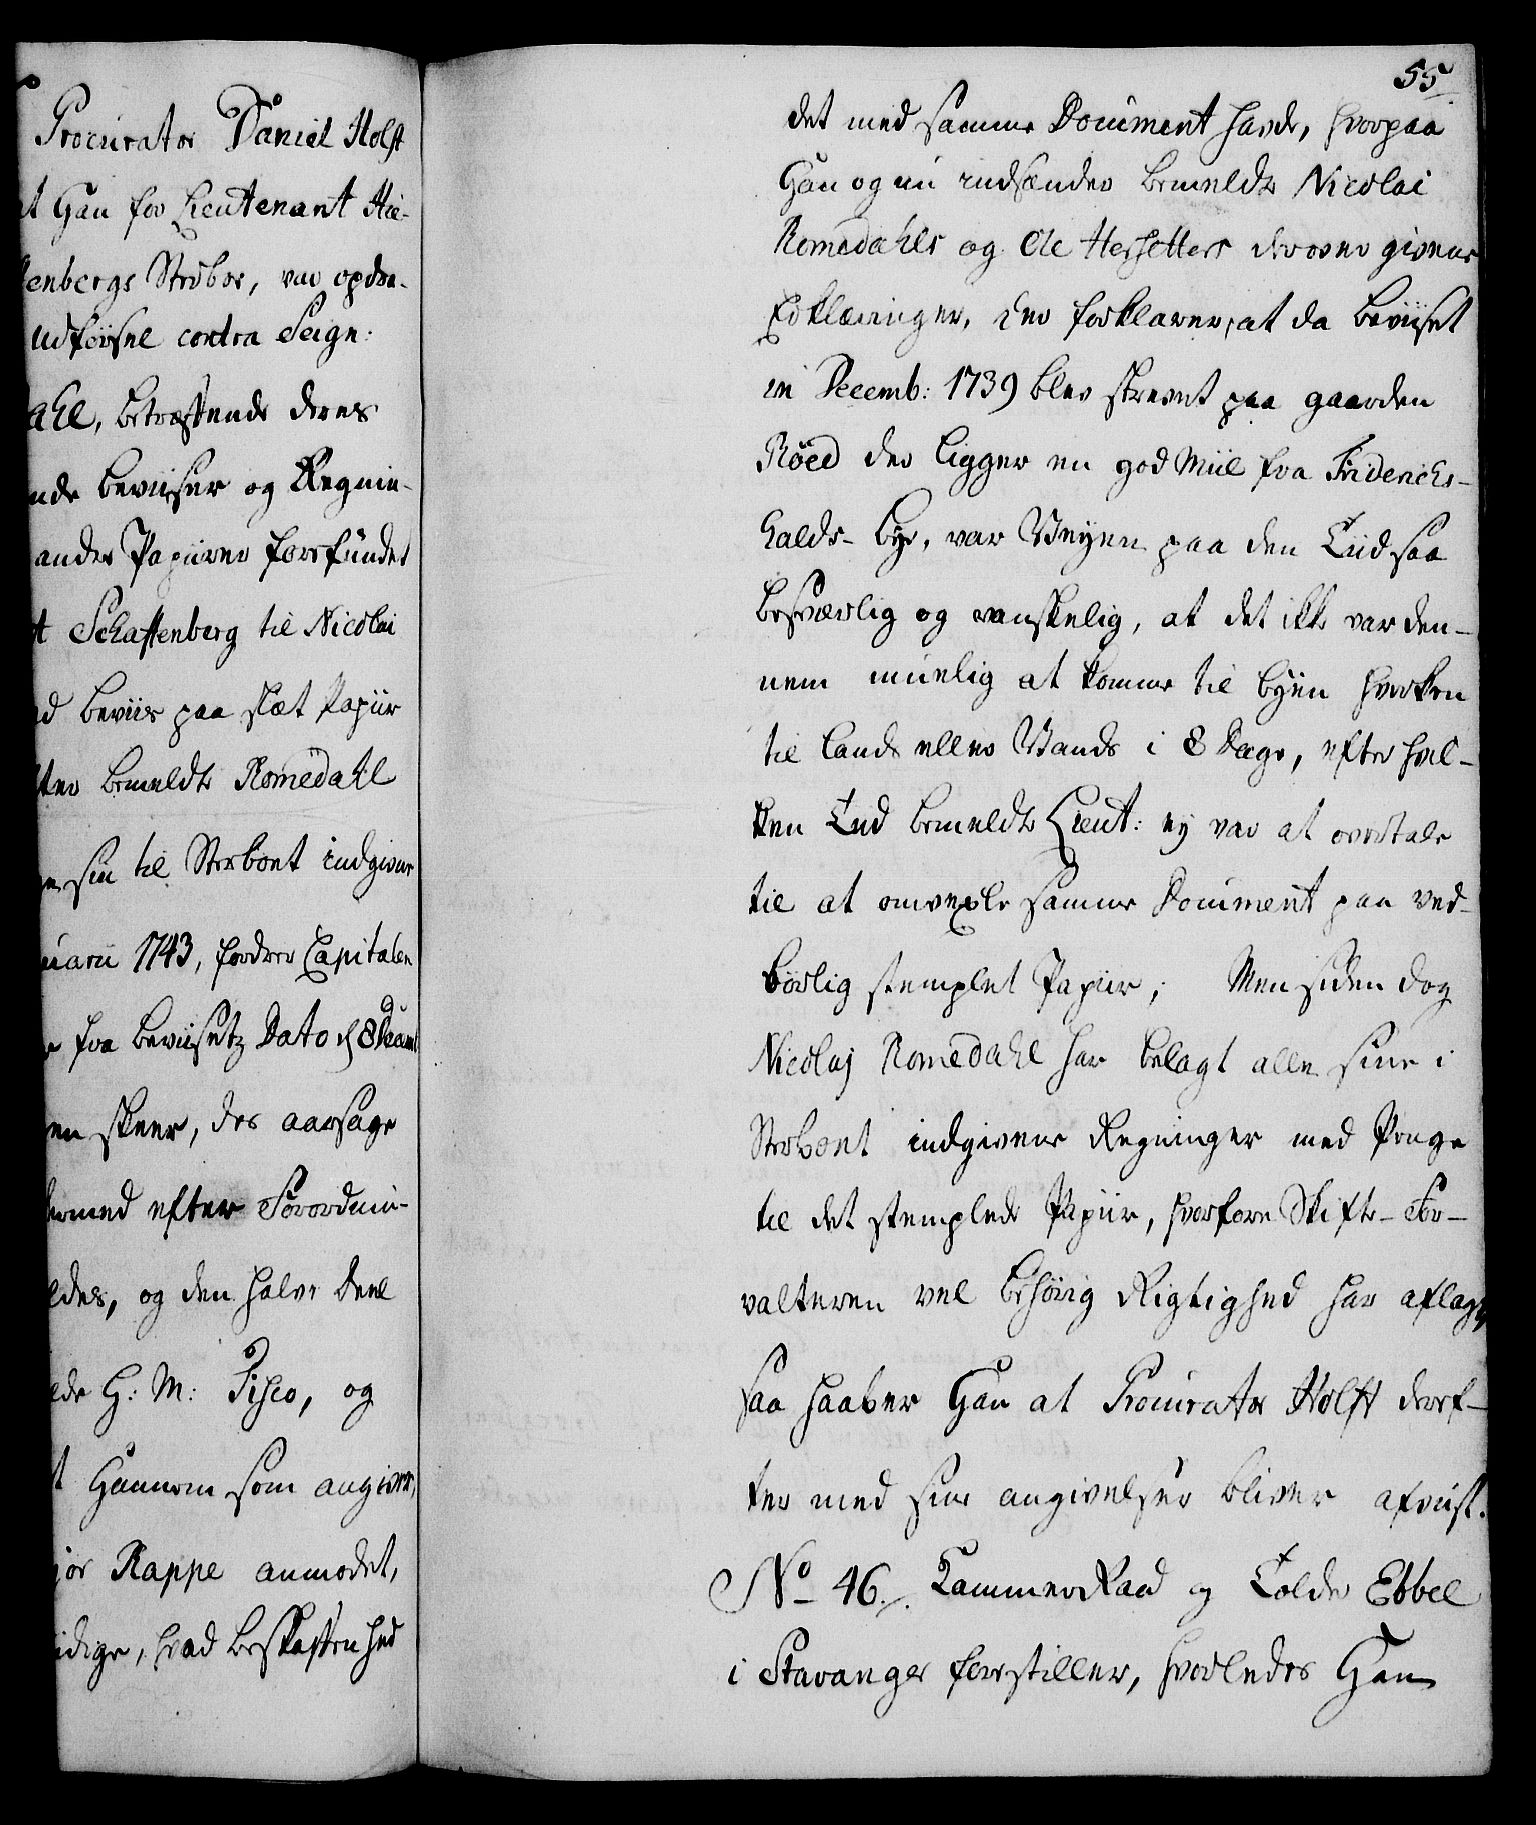 Procurator Daniel Holst
t Han for Lieutenant Hie-
enbergs Sterboe, var opdra-
Udførsel contra Seign:
ahl, betræffende deres
nde beviiser og Regnin-
andre Papiirer forefundet
t Schaftenberg til Nicolai
d beviis paa slæt Papiir
ter bemeldte Romedahl
sin til Sterboet indgivne
uarii 1743, fordrer Capitalen
fra beviisetz Dato d 8 Decemb
en skeer, des aarsage
ermed efter Forordnin-
ldes, og den halve Deel
de H: M: Fisco, og
t Hannem som angiver,
jor Rappe anmodet,
idige, hvad beskaffenhed
55
det med samme Document havde, hvorpaa
Han og nu indsender bemeldte Nicolai
Romedahls og Ole Hersetters derover givene
Erklæringer, der forklarer, at da beviiset
in Decemb: 1739 blev skrevet paa gaarden
Röed der ligger en god Miil fra Friderichs-
halds-bye, var Veyen paa den Tiid saa
besværlig og vanskelig, at det ikke var den-
nem muelig at komme til byen hverken
til lands eller Vands i 8 Dage, efter hvil-
ken Tiid bemeldte Lieut: ey var at overtale
til at omvexle samme Document paa ved-
börlig stemplet Papiir; Men siden dog
Nicolaj Romedahl har belagt alle sine i
Sterboet indgivene Regninger med Penge
til det stemplede Papiir, hvorfore Skifte-For-
valteren vel behörig Rigtighed har aflagt,
saa haaber Han at Procurator Holst deref-
ter med sine angivelser bliver afviist.
No 46. CammerRaad og Tolder Ebbel
i Stavanger forestiller, hvorledes Han